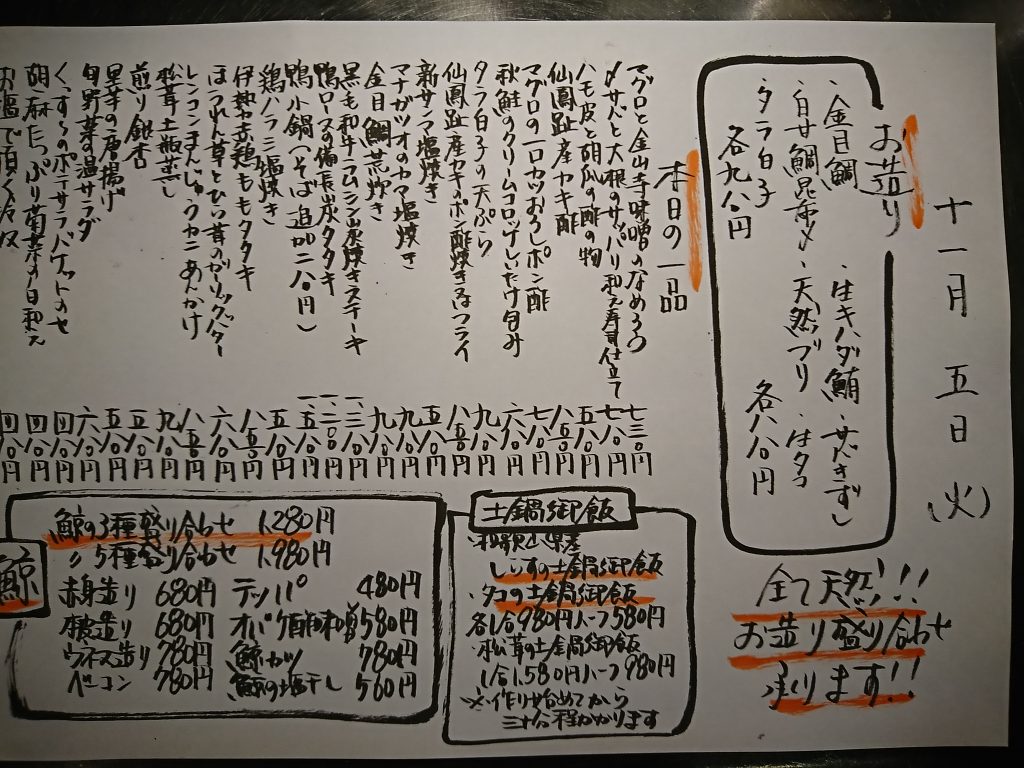 十一月五日(火)
お造り
・金目鯛 ・生キハダ鮪 ・サバきずし
・白甘鯛昆布〆 ・天然ブリ ・生タコ
・タラ白子
各九八〇円 各八八〇円
全て天然!!!
お造り盛り合わせ
承ります!!
本日の一品
マグロと金山寺味噌のなめろう 七三〇円
〆サバと大根のサッパリ和え寿司仕立て 七八〇円
ハモ皮と胡瓜の酢の物 六五〇円
仙鳳趾産カキ酢 八五〇円
マグロの一口カツおろしポン酢 七八〇円
秋鮭のクリームコロッケしいたけ包み 六八〇円
タラ白子の天ぷら 九八〇円
仙鳳趾産カキのポン酢焼きor フライ 八五〇円
新サンマ塩焼き 五八〇円
マナガツオのカマ塩焼き 九八〇円
金目鯛荒炊き 九八〇円
黒毛和牛ラムシン炭焼きステーキ
鴨ロースの備長炭タタキ
鴨小鍋(そば追加二八〇円)
鶏ハラミ塩焼き 五八〇円
伊勢赤鶏ももタタキ 八五〇円
ほうれん草とひら茸のガーリックバター 六八〇円
レンコンまんじゅうカニあんかけ 八五〇円
松茸土瓶蒸し 九八〇円
煎り銀杏 五五〇円
里芋の唐揚げ 五八〇円
旬野菜の温サラダ 六八〇円
くんずるのポテサラバケットのせ 四八〇円
胡麻たっぷり菊菜の白和え 四八〇円
お塩で頂く 四八〇円
土鍋御飯
・和歌山県産
しらすの土鍋御飯
・タコの土鍋御飯
各1合980円ハーフ580円
・松茸の土鍋御飯
1合1.580円ハーフ980円
※作り始めてから
三十分程かかります
鯨
鯨の3種盛り合わせ 1.280円
〃5種盛り合わせ 1.980円
赤身造り 680円 テッパ 480円
本皮造り 680円 オバケ酢味噌 580円
ウネス造り 780円 鯨カツ 780円
ベーコン 780円 鯨の塩干し 560円